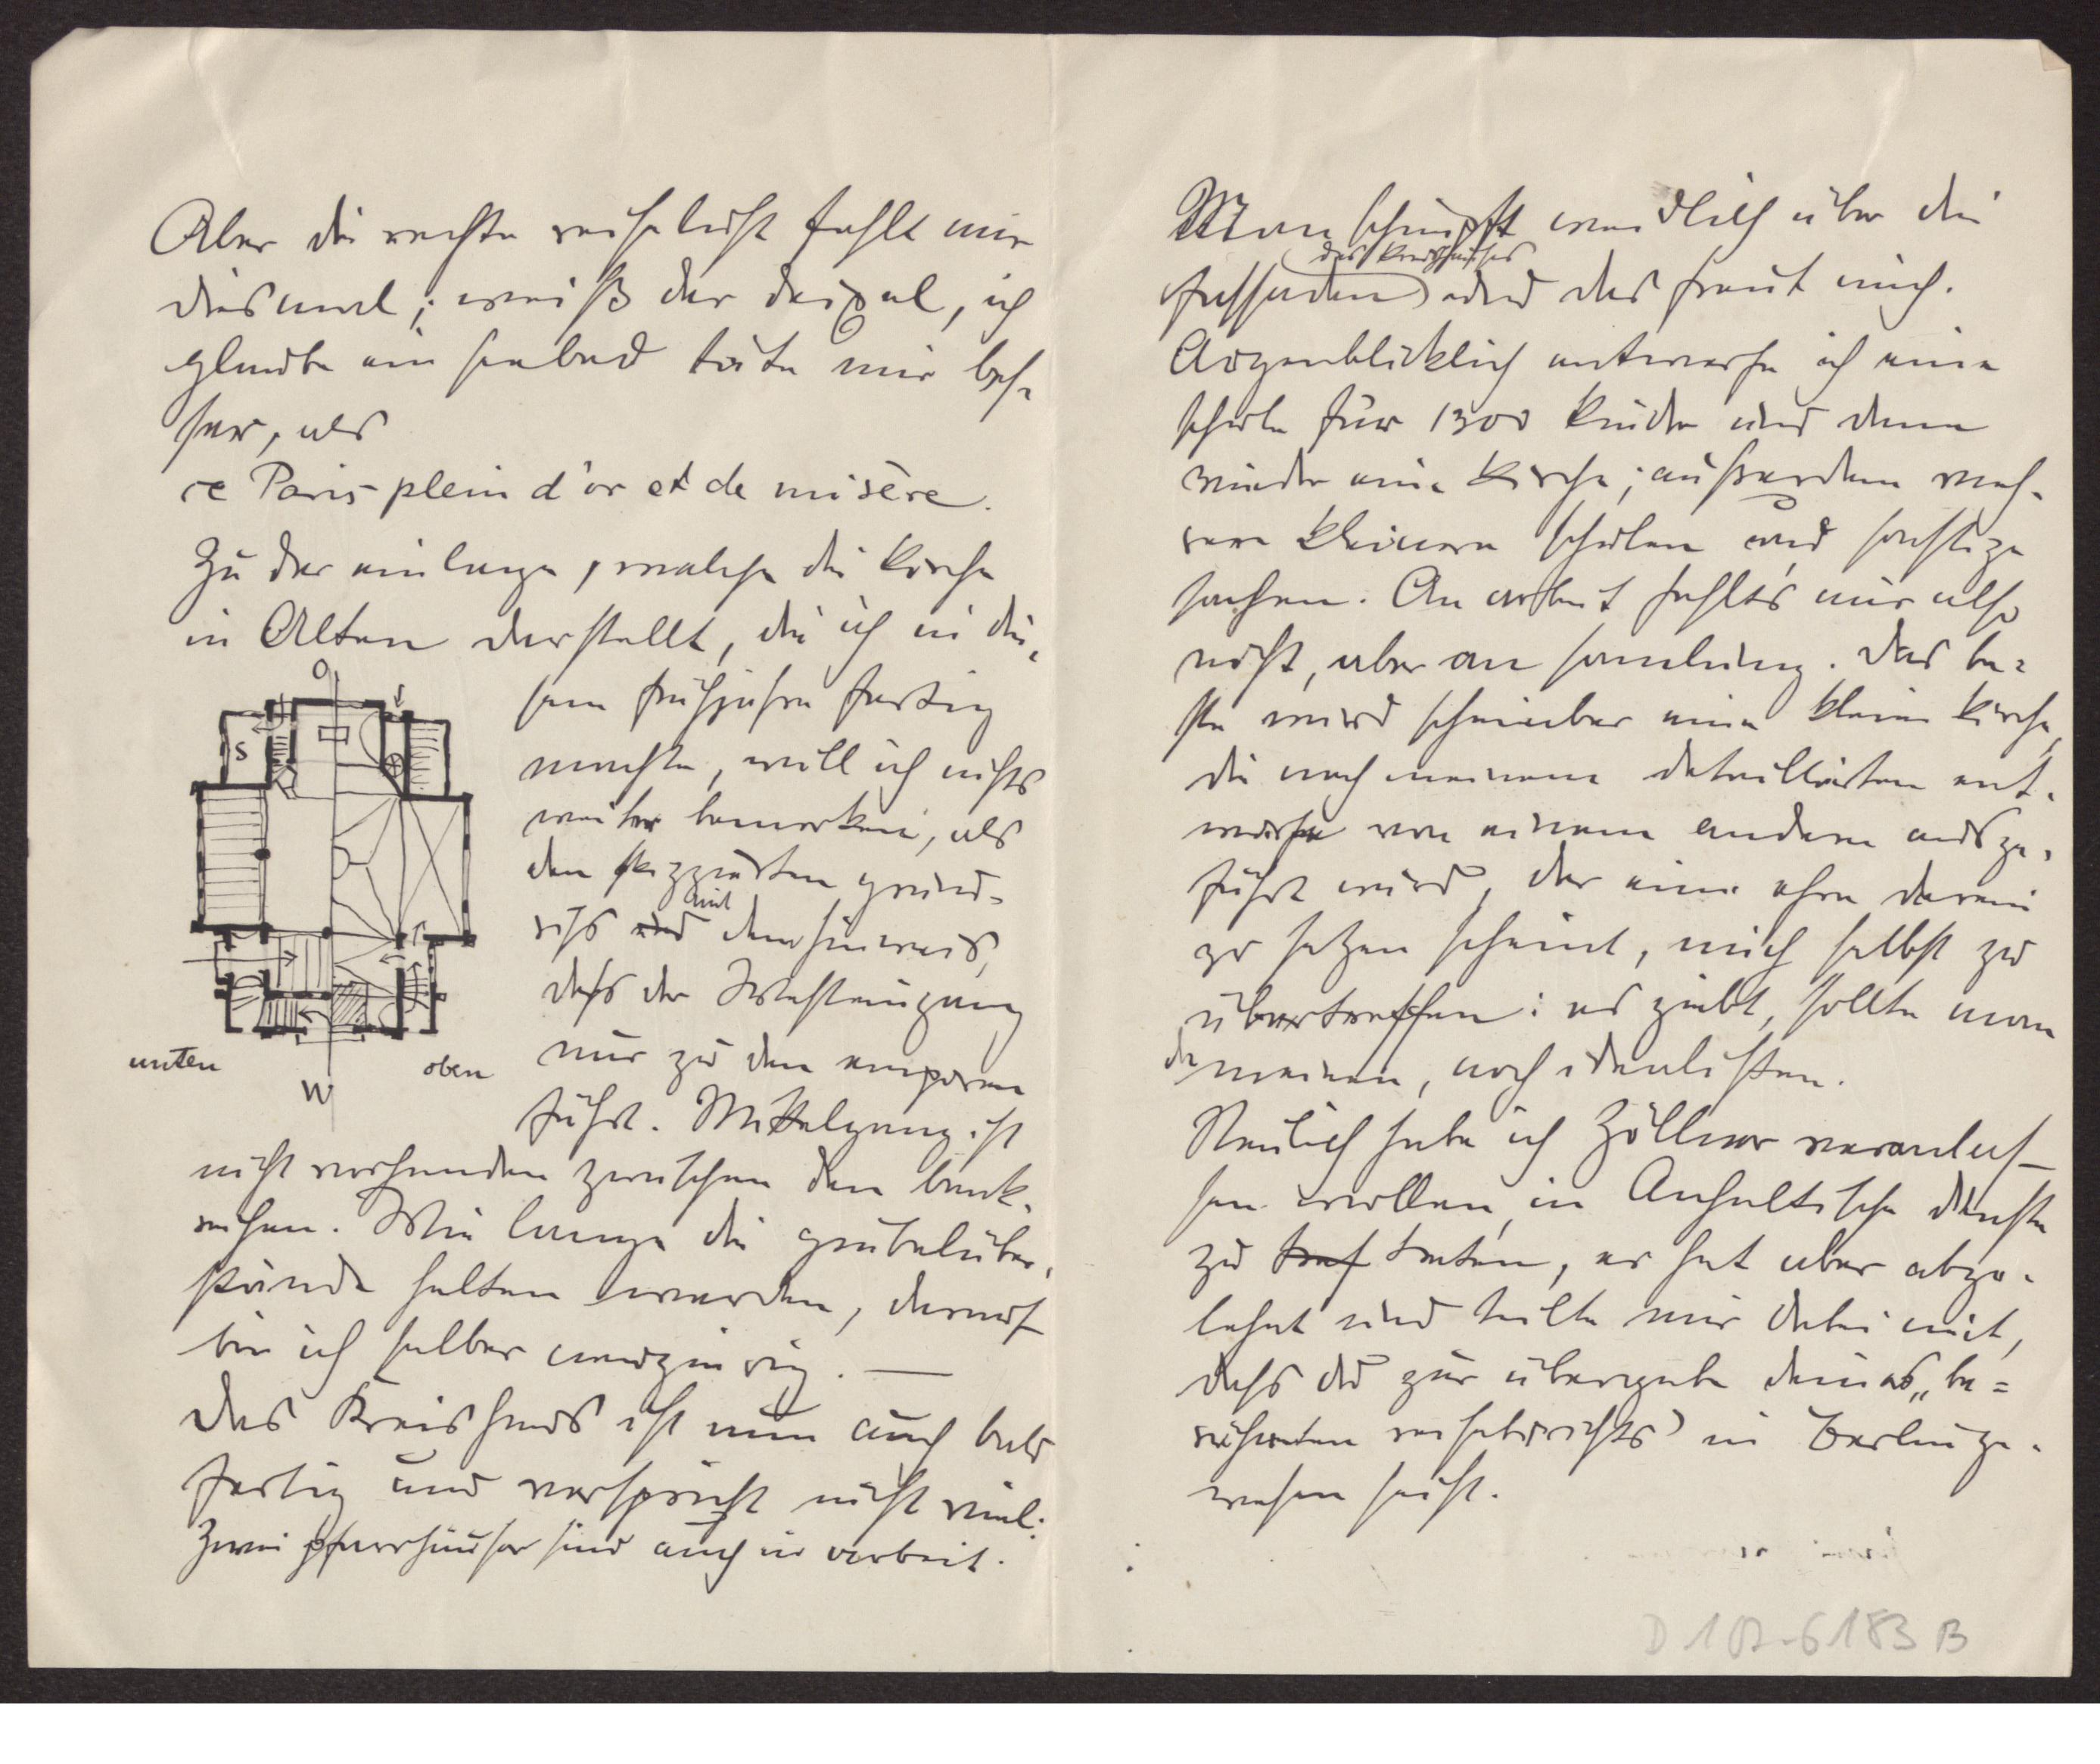 Aber die rechte reiselust fehlt mir
diesmal; weiß der deixel, ich
glaube ein seebad täte mir bes-
ser, als
ce Paris plein d'or et de misère.
Zu der einlage, welche die kirche
in Alten darstellt, die ich in die-
sem frühjahre fertig
machte, will ich nichts
weiter bemerken, als
den skizzierten grund-
riss und mit dem hinweis,
dass der Westeingang
nur zu den emporen
führt. Mittelgang ist
nicht vorhanden zwischen den bank-
reihen. Wie lange die giebelüber-
stände halten werden, darauf
bin ich selber neugierig. —
Das Kreishaus ist nun auch bald
fertig und verspricht nicht viel.
Zwei pfarrhäuser sind auch in arbeit.
O
S
unten
oben
W
Man schimpft weidlich über die
des kreishauses
fassaden und das freut mich.
Augenblicklich entwerfe ich eine
schule für 1300 kinder und dann
wieder eine kirche; ausserdem meh-
rere kleinere schulen und sonstige
sachen. An arbeit fehlt's mir also
nicht, aber an samlung. Das be-
ste wird scheinbar eine kleine kirche,
die nach meinem detaillierten ent-
wurfe von einem andern ausge-
führt wird, der eine ehre darein
zu setzen scheint, mich selbst zu
übertreffen: es giebt, sollte man
da meinen, noch idealisten.
Neulich habe ich Zöllner veranlas-
sen wollen, in Anhaltische dienste
zu treten, er hat aber abge-
lehnt und teilte mir dabei mit,
dass du zur übergabe deines „be-
rühmten reiseberichts" in Berlin ge-
wesen seist.
D 107-6183 B